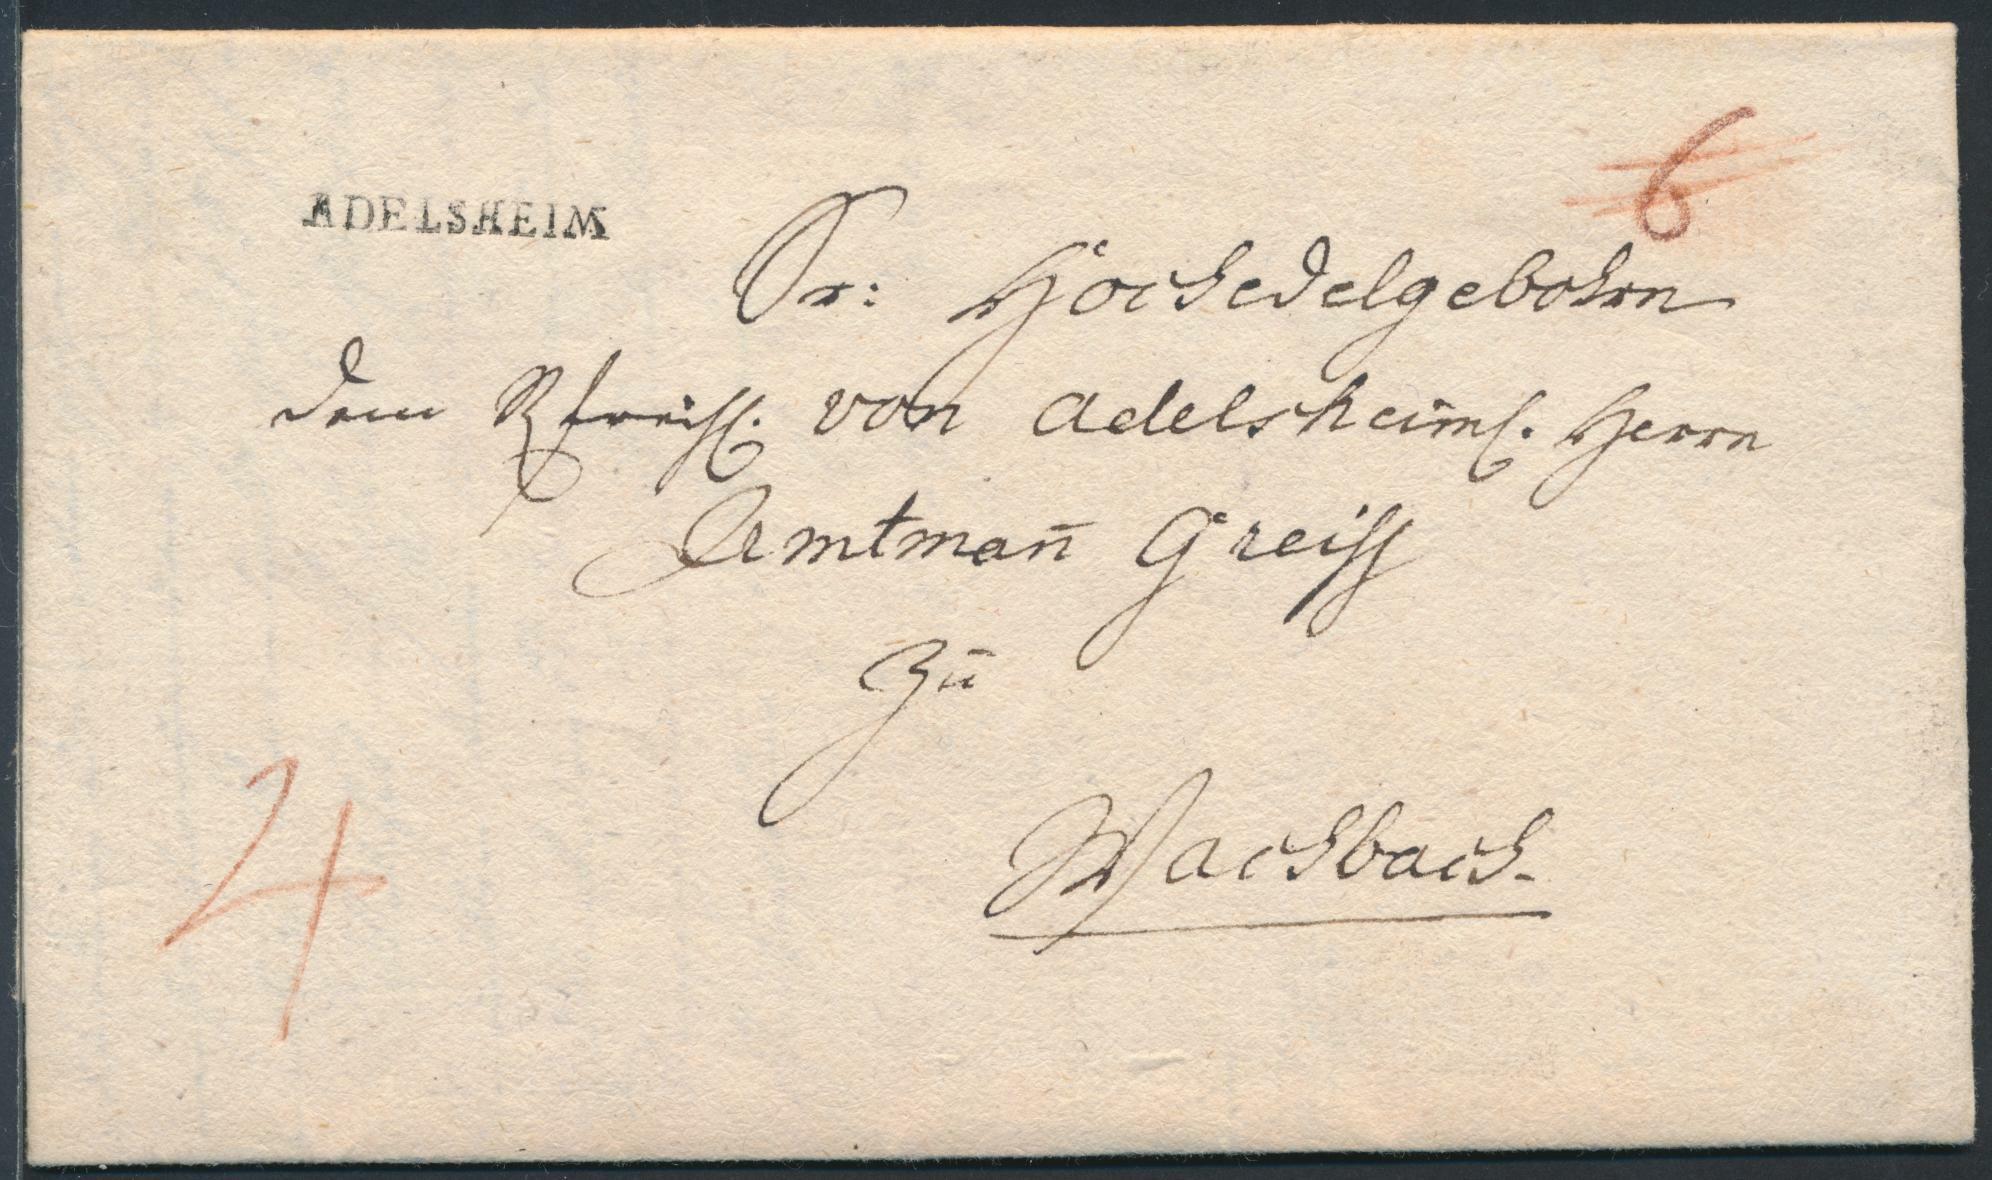 ADELSHEIM
6
Sr: Hochedelgebohrn
dem Rfreihl. von Adelsheiml. Herrn
Amtman̄ Greiss
Zu
Wachbach.
4